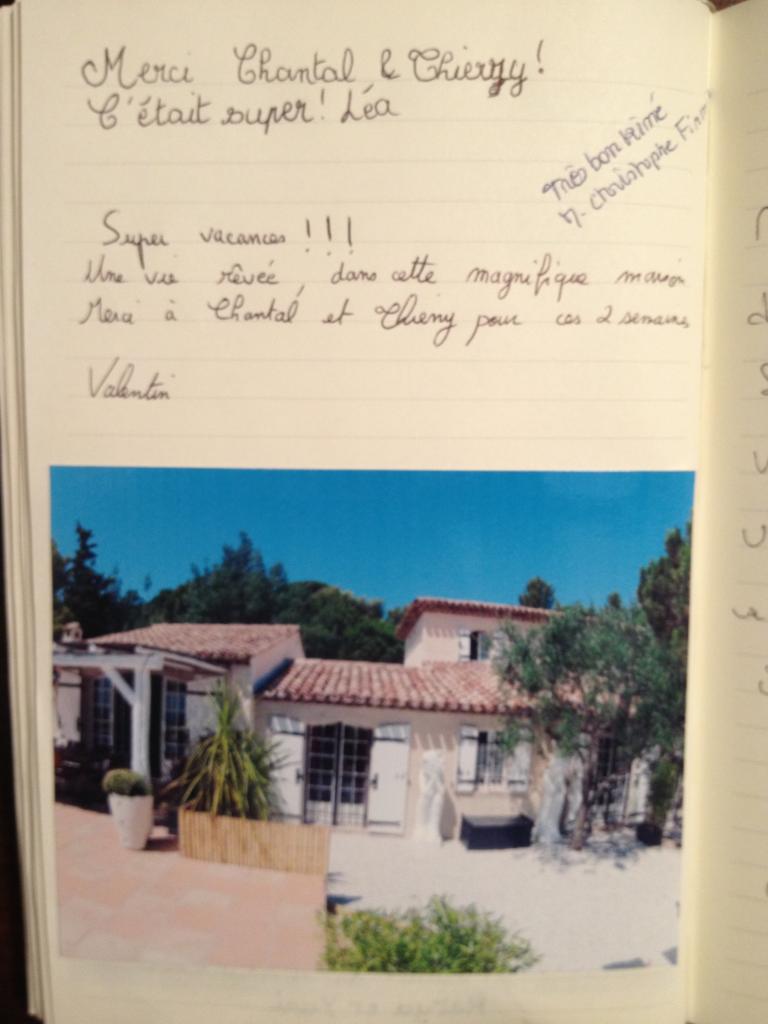 Merci Chantal & Thierry!
C'était super! Léa
Très bon
M. Christophe
Super vacances !!!
Une vie rêvée, dans cette magnifique maison
Merci à Chantal et Thierry pour ces 2 semaines
Valentin